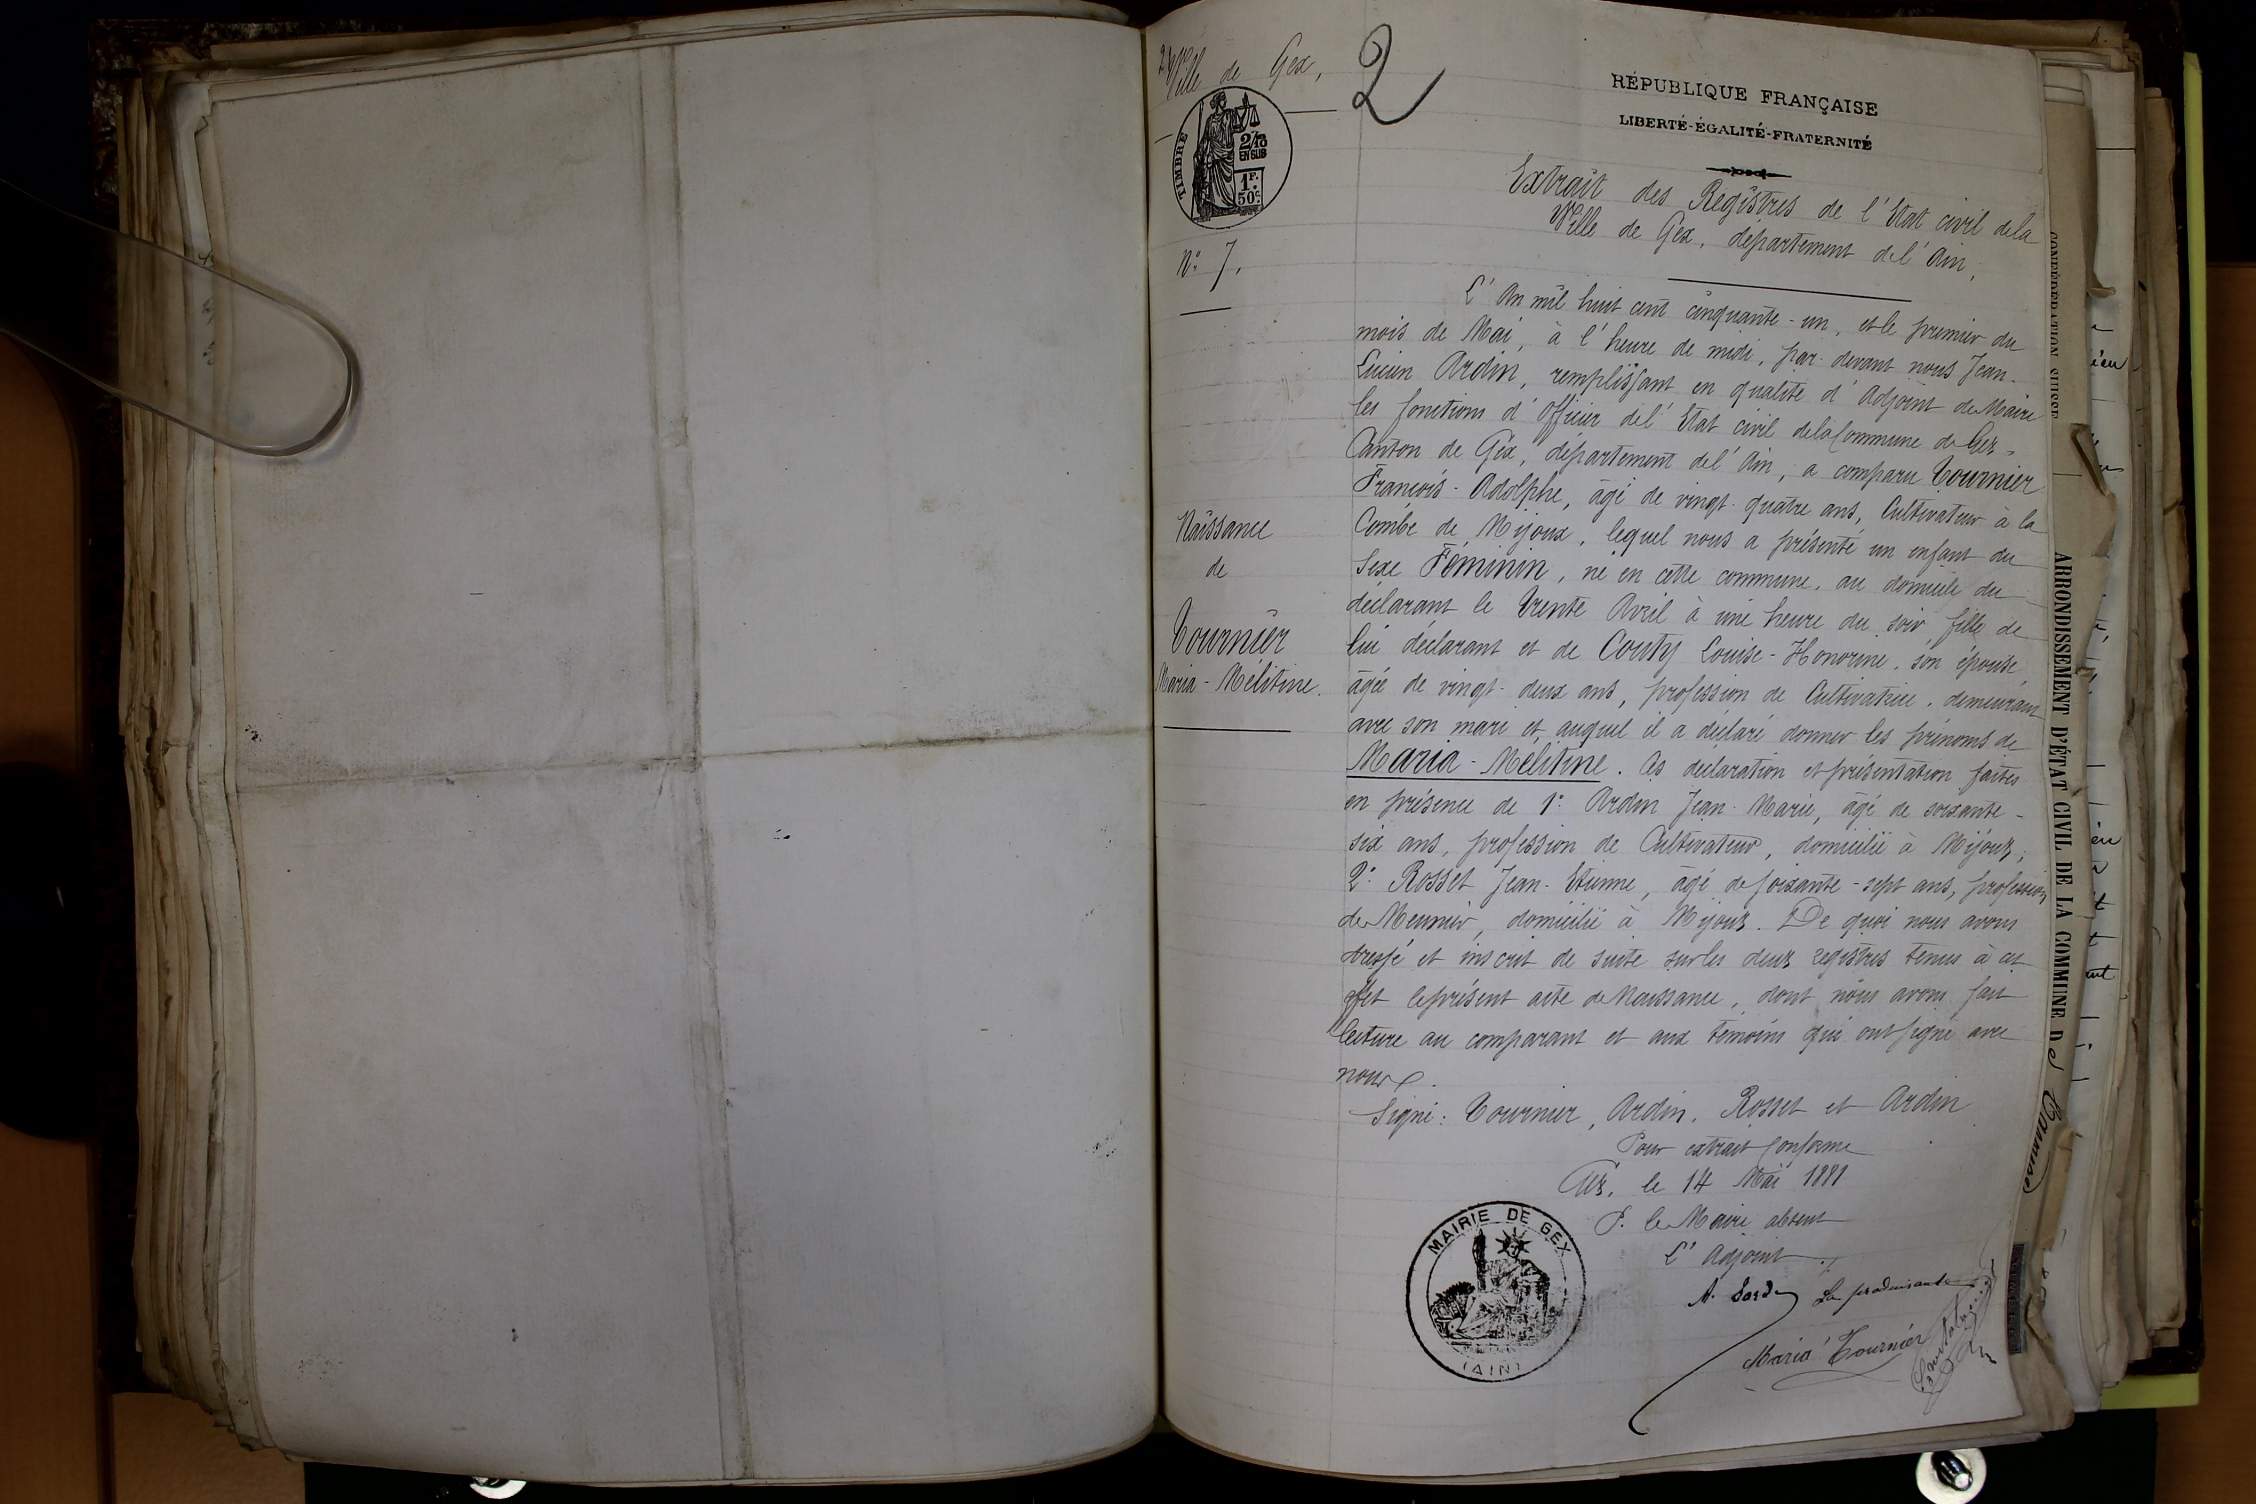 Ville de Gex,
2
TIMBRE
2/10
EN SUS
1F.
50c.
RÉPUBLIQUE FRANÇAISE
LIBERTÉ-ÉGALITÉ-FRATERNITÉ
Extrait des Registres de l'Etat civil de la
Ville de Gex, département de l'Ain,
N° 7.
Naissance
de
Tournier
Maria-Mélitine.
L'An mil huit cent cinquante-un, et le premier du
mois de Mai, à l'heure de midi, par devant nous Jean-
Lucien Ardin, remplissant en qualité d'Adjoint de Maire
les fonctions d'Officier de l'Etat civil de la Commune de Gex,
Canton de Gex, département de l'Ain, a comparu Tournier
François-Adolphe, âgé de vingt-quatre ans, Cultivateur à la
Combe de Mijoux, lequel nous a présenté un enfant du
Sexe Féminin, né en cette commune, au domicile du
déclarant le trente Avril à une heure du soir, fille de
lui déclarant et de Couty Louise-Honorine, son épouse,
âgée de vingt-deux ans, profession de Cultivatrice, demeurant
avec son mari et auquel il a déclaré donner les prénoms de
Maria-Mélitine. Ces déclaration et présentation faites
en présence de 1° Ardin Jean-Marie, âgé de soixante-
six ans, profession de Cultivateur, domicilié à Mijoux,
2° Rosset Jean-Etienne, âgé de soixante-sept ans, profession
de Meunier, domicilié à Mijoux. De quoi nous avons
dressé et inscrit de suite sur les deux registres tenus à cet
effet le présent acte de Naissance, dont nous avons fait
lecture au comparant et aux témoins qui ont signé avec
nous.
Signé: Tournier, Ardin, Rosset et Ardin
Pour extrait conforme
Gex, le 14 Mai 1881
P. le Maire absent
L'Adjoint
La produisante
Maria Tournier
MAIRIE DE GEX
(AIN)
CONFÉDÉRATION SUISSE
ARRONDISSEMENT D'ÉTAT CIVIL DE LA COMMUNE D